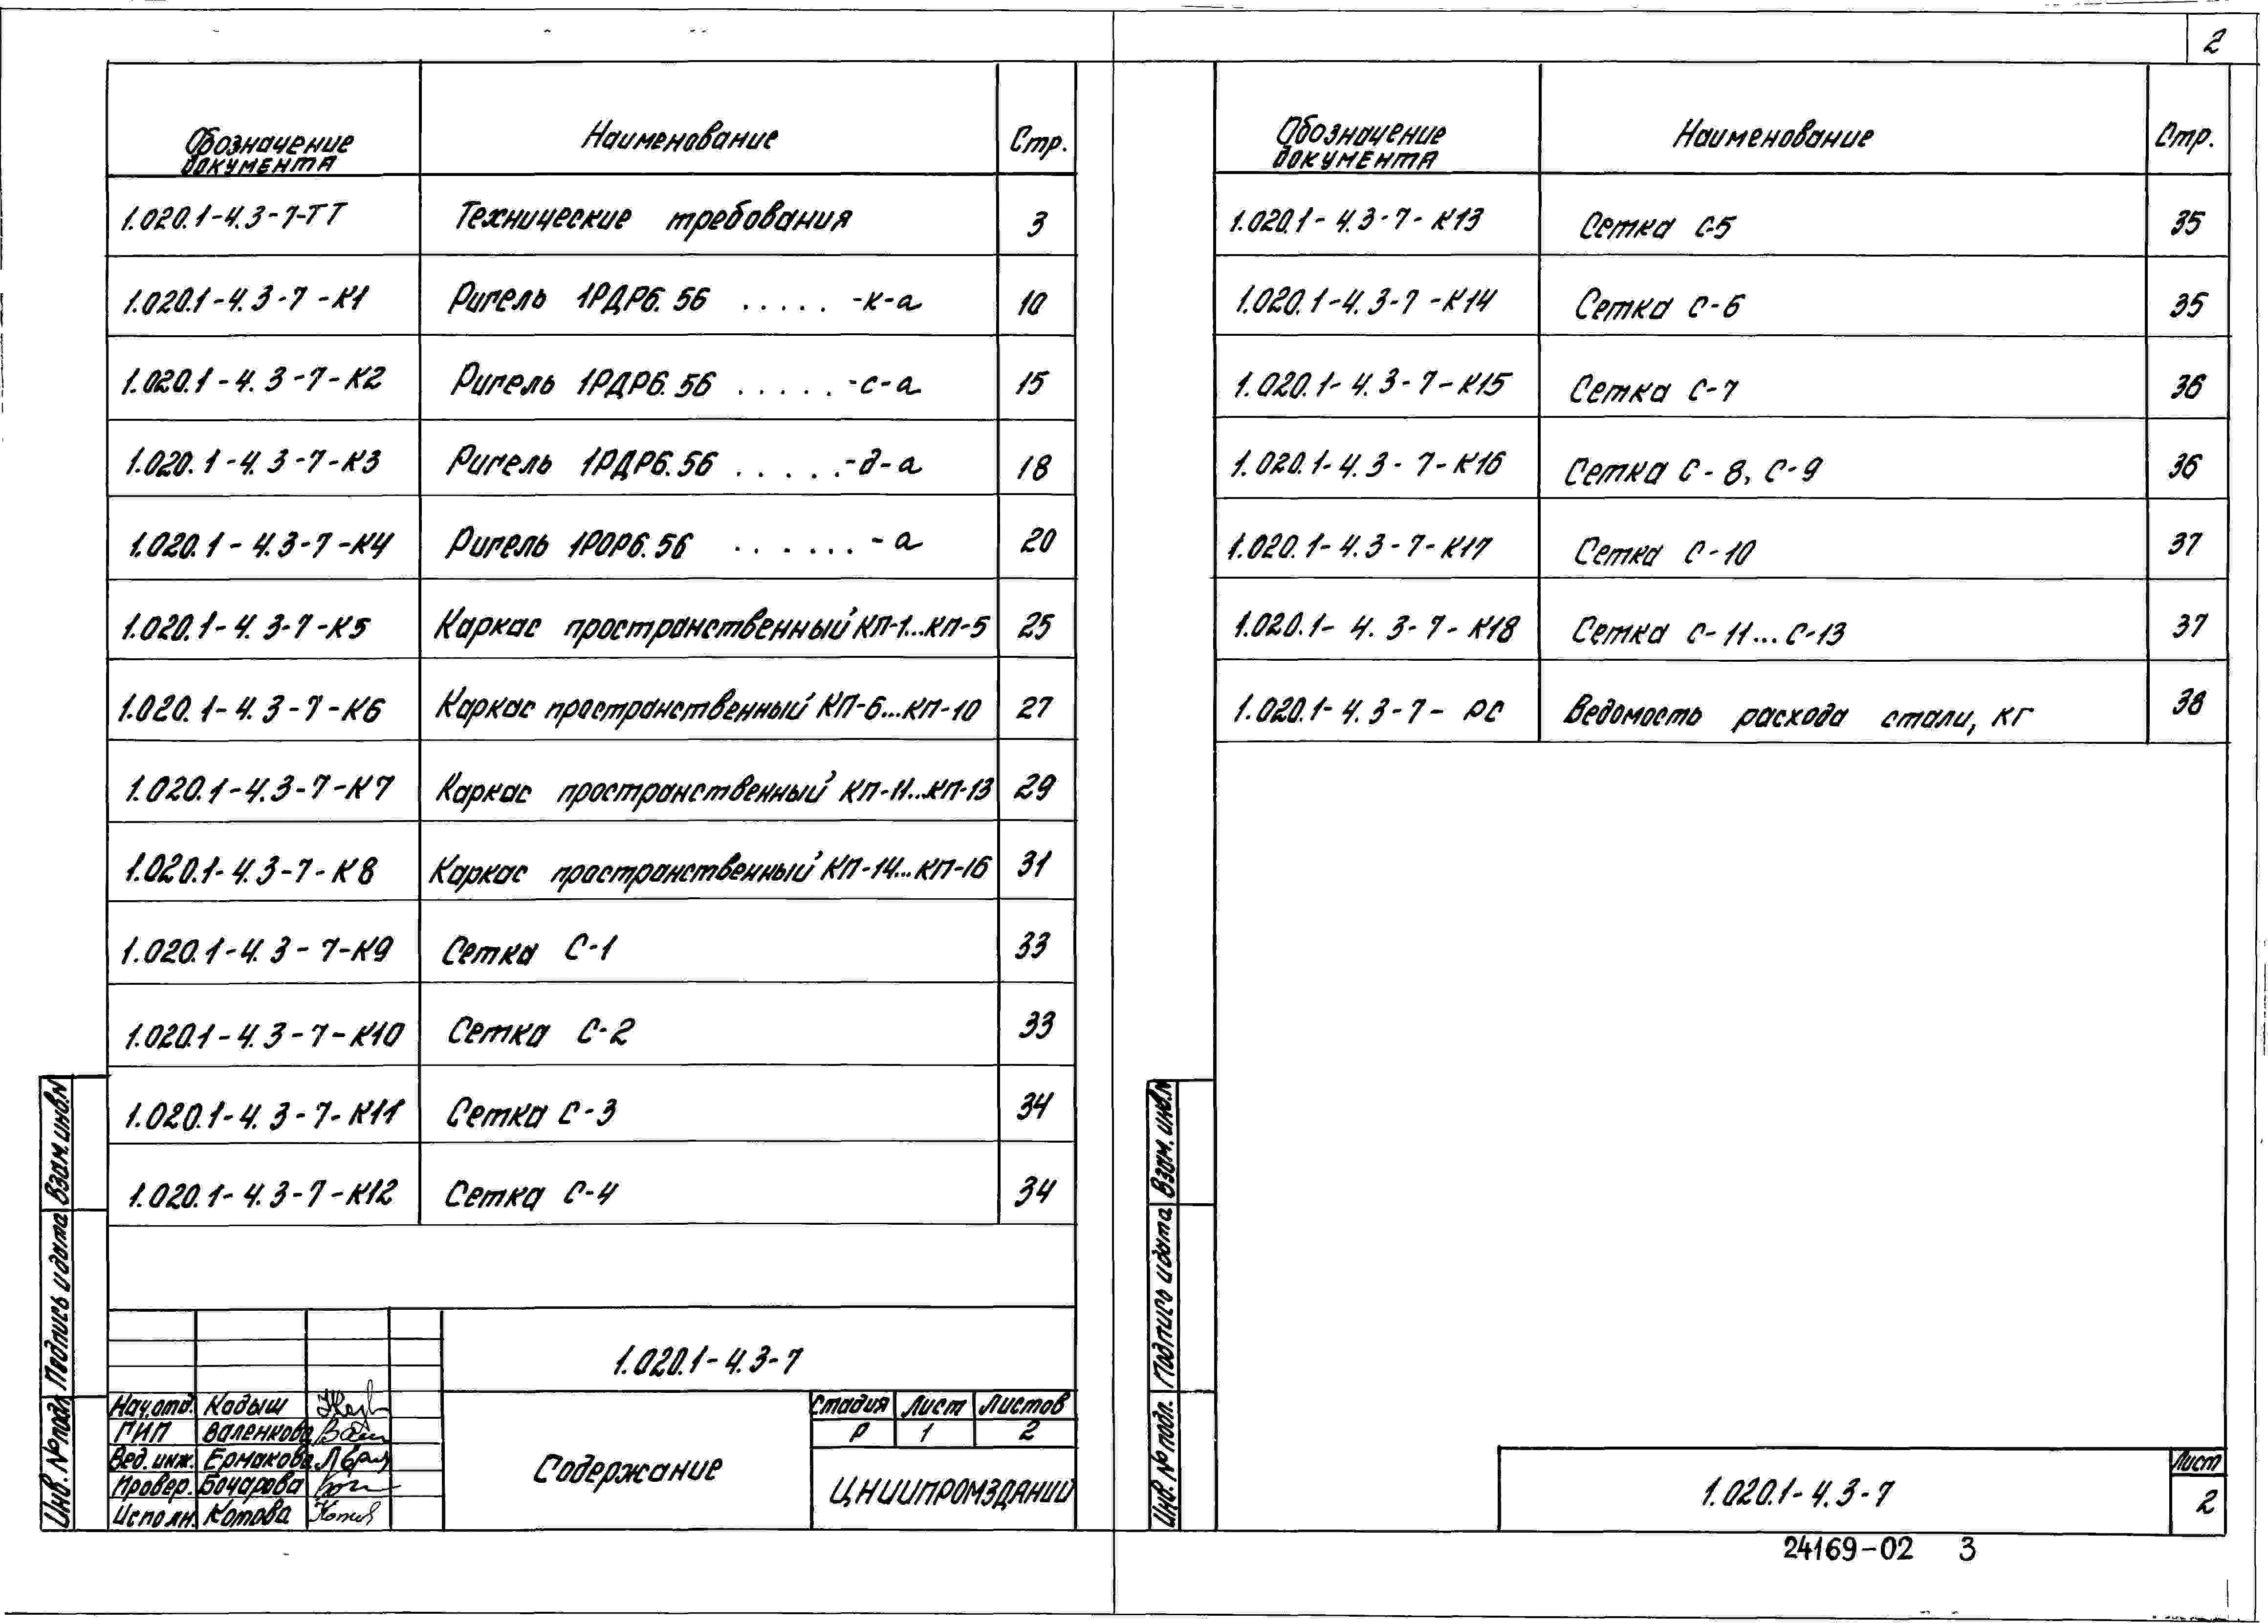 2
Обозначение документа Наименование Стр.
1.020.1-4.3-7-ТТ Технические требования 3
1.020.1-4.3-7-К1 Ригель 1РДР6.56 .....-к-а 10
1.020.1-4.3-7-К2 Ригель 1РДР6.56 .....-с-а 15
1.020.1-4.3-7-К3 Ригель 1РДР6.56 .....-д-а 18
1.020.1-4.3-7-К4 Ригель 1РОР6.56 ......-а 20
1.020.1-4.3-7-К5 Каркас пространственный КП-1...КП-5 25
1.020.1-4.3-7-К6 Каркас пространственный КП-6...КП-10 27
1.020.1-4.3-7-К7 Каркас пространственный КП-11...КП-13 29
1.020.1-4.3-7-К8 Каркас пространственный КП-14...КП-16 31
1.020.1-4.3-7-К9 Сетка С-1 33
1.020.1-4.3-7-К10 Сетка С-2 33
1.020.1-4.3-7-К11 Сетка С-3 34
1.020.1-4.3-7-К12 Сетка С-4 34
Инв. № подл. Подпись и дата Взам. инв. N
1.020.1-4.3-7
Нач. отд. Кодыш
ГИП Валенкова
Вед. инж. Ермакова
Провер. Бочарова
Исполн. Котова
Содержание
Стадия Лист Листов
Р 1 2
ЦНИИПРОМЗДАНИЙ
Обозначение документа Наименование Стр.
1.020.1-4.3-7-К13 Сетка С-5 35
1.020.1-4.3-7-К14 Сетка С-6 35
1.020.1-4.3-7-К15 Сетка С-7 36
1.020.1-4.3-7-К16 Сетка С-8, С-9 36
1.020.1-4.3-7-К17 Сетка С-10 37
1.020.1-4.3-7-К18 Сетка С-11...С-13 37
1.020.1-4.3-7-РС Ведомость расхода стали, кг 38
Инв. № подл. Подпись и дата Взам. инв. N
1.020.1-4.3-7
Лист
2
24169-02 3